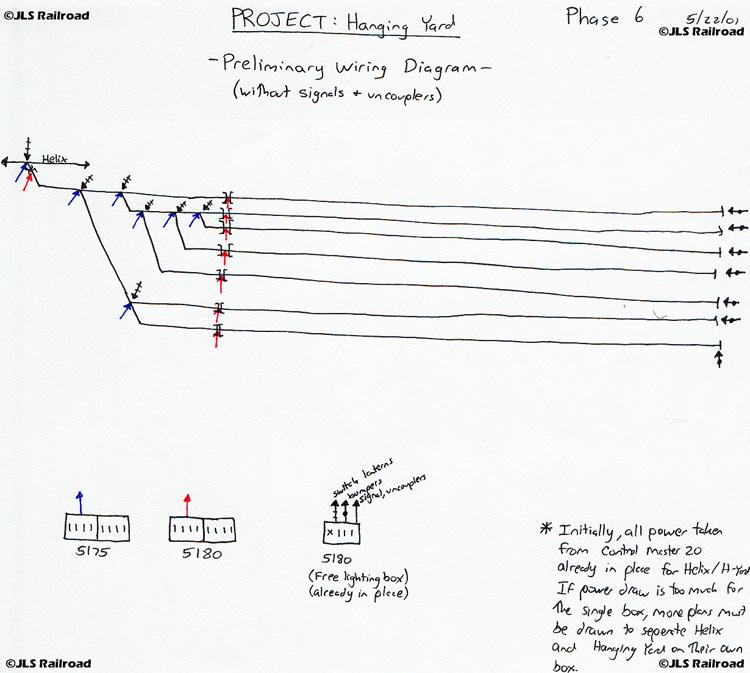 ©JLS Railroad
PROJECT: Hanging Yard
Phase 6
5/22/01
©JLS Railroad
-Preliminary Wiring Diagram-
(without signals + uncouplers)
Helix
switch lanterns
bumpers
signal, uncouplers
5175
5180
x
5180
(Free lighting box)
(already in place)
* Initially, all power taken
from Control Master 20
already in place for Helix/H-Yard
If power draw is too much for
the single box, more plans must
be drawn to seperate Helix
and Hanging Yard on their own
box.
©JLS Railroad
©JLS Railroad